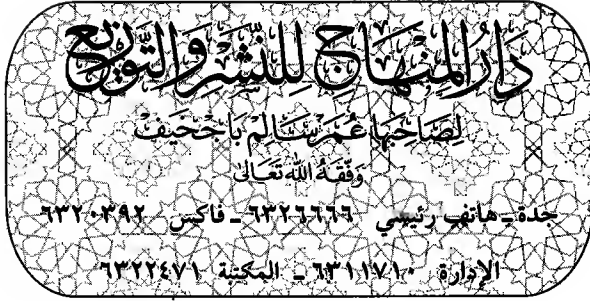 دَارُ الْمِنْهَاجِ لِلنَّشْرِ وَالتَّوْزِيعِ
لِصَاحِبِهَا عُمَر سَالِم بَاجخَيف
وَفَّقَهُ اللهُ تَعَالَى
جدة - هاتف رئيسي ٦٣٢٦٦٦٦ - فاكس ٦٣٢٠٣٩٢
الإدارة ٦٣١١٧١٠ - المكتبة ٦٣٢٢٤٧١